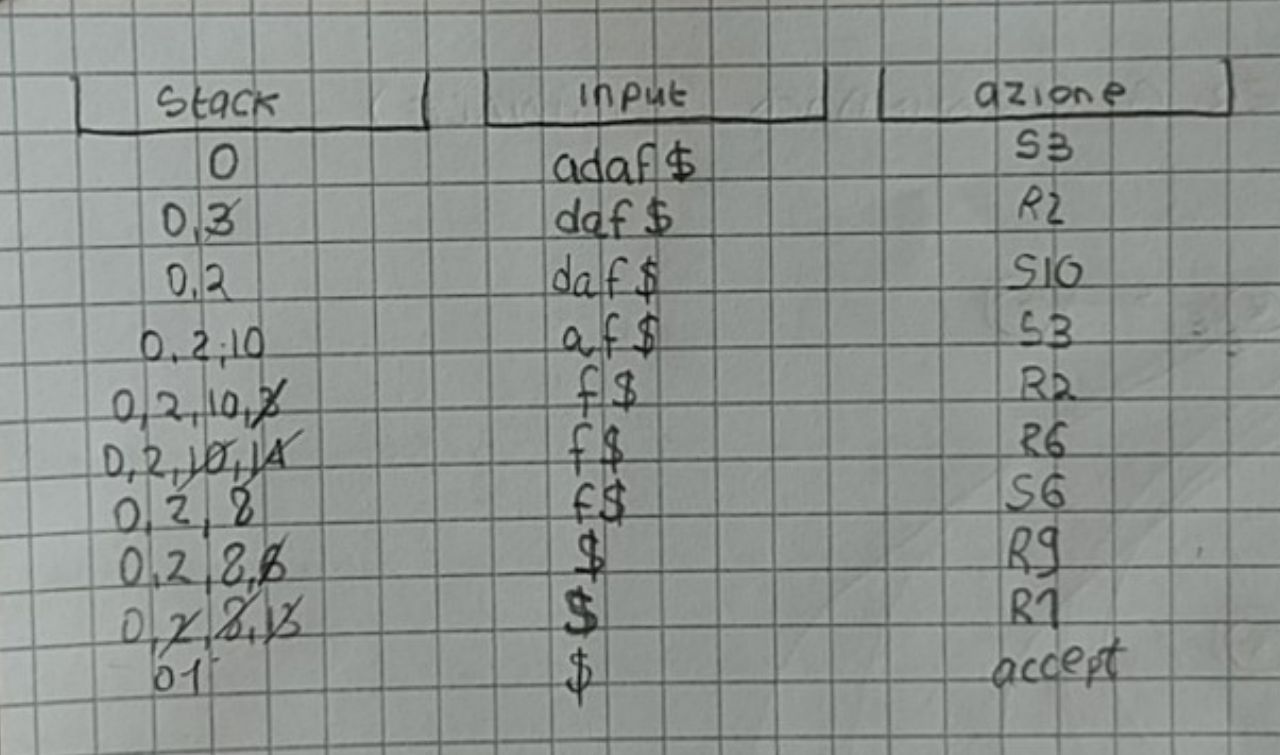 Stack input azione
0 adaf$ S3
0,3 daf$ R2
0,2 daf$ S10
0,2,10 af$ S3
0,2,10,3 f$ R2
0,2,10,14 f$ R6
0,2,8 f$ S6
0,2,8,6 $ R9
0,2,8,13 $ R1
01 $ accept